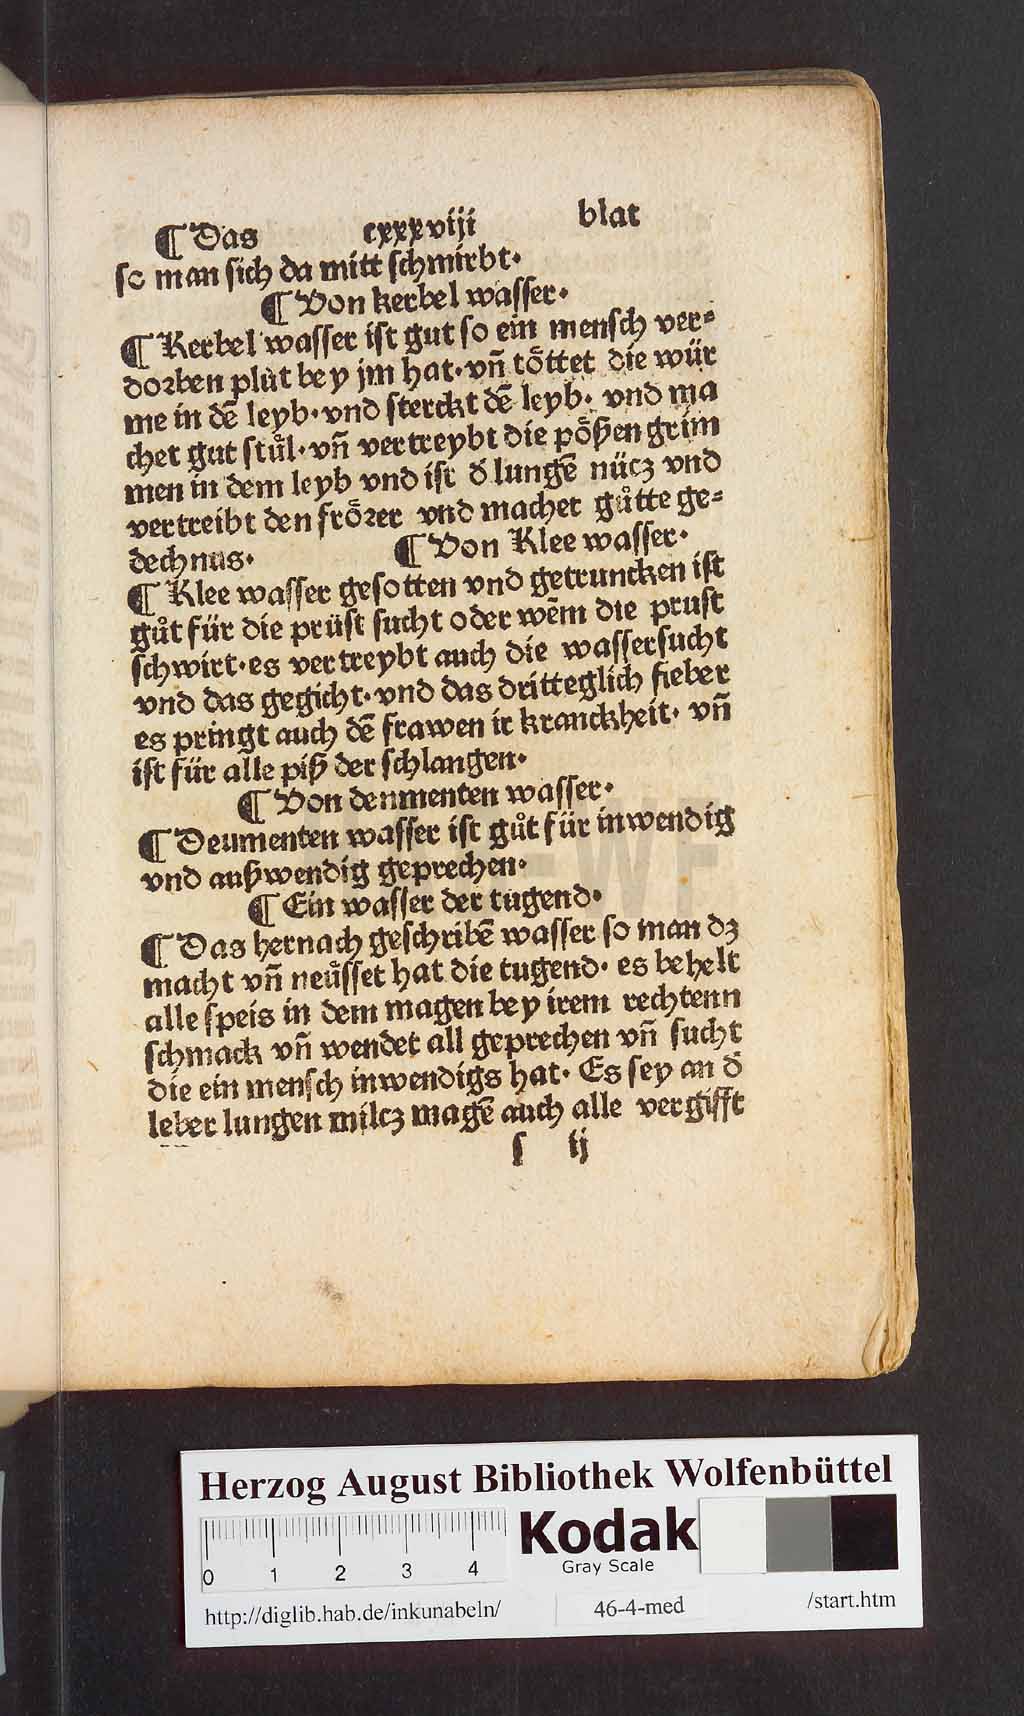 ¶ Das cxxxviij blat
so man sich da mitt schmirbt·
¶ Von kerbel wasser·
¶ Kerbel wasser ist gut so ein mensch ver⸗
dorben plůt bey jm hat· vn̄ to̎ttet die wür
me in dē leyb· vnd sterckt dē leyb· vnd ma
chet gut stůl· vn̄ vertreybt die pößen grim
men in dem leyb vnd ist d̕ lungē nücz vnd
vertreibt den frörer vnd machet gůtte ge⸗
dechnus· ¶ Von Klee wasser·
¶ Klee wasser gesotten vnd getruncken ist
gůt für die prüst sucht oder wēm die prust
schwirt· es vertreybt auch die wassersucht
vnd das gegicht· vnd das dritteglich fieber
es pringt auch dē frawen ir kranckheit· vn̄
ist für alle piß der schlangen·
¶ Von denmenten wasser·
¶ Deumenten wasser ist gůt für inwendig
vnd außwendig geprechen·
¶ Ein wasser der tugend·
¶ Das hernach geschribē wasser so man dz
macht vn̄ neüsset hat die tugend· es behelt
alle speis in dem magen bey irem rechtenn
schmack vn̄ wendet all geprechen vn̄ sucht
die ein mensch inwendigs hat· Es sey an d̕
leber lungen milcz magē auch alle vergifft
s ij
Herzog August Bibliothek Wolfenbüttel
0 1 2 3 4
Kodak
Gray Scale
http://diglib.hab.de/inkunabeln/ 46-4-med /start.htm